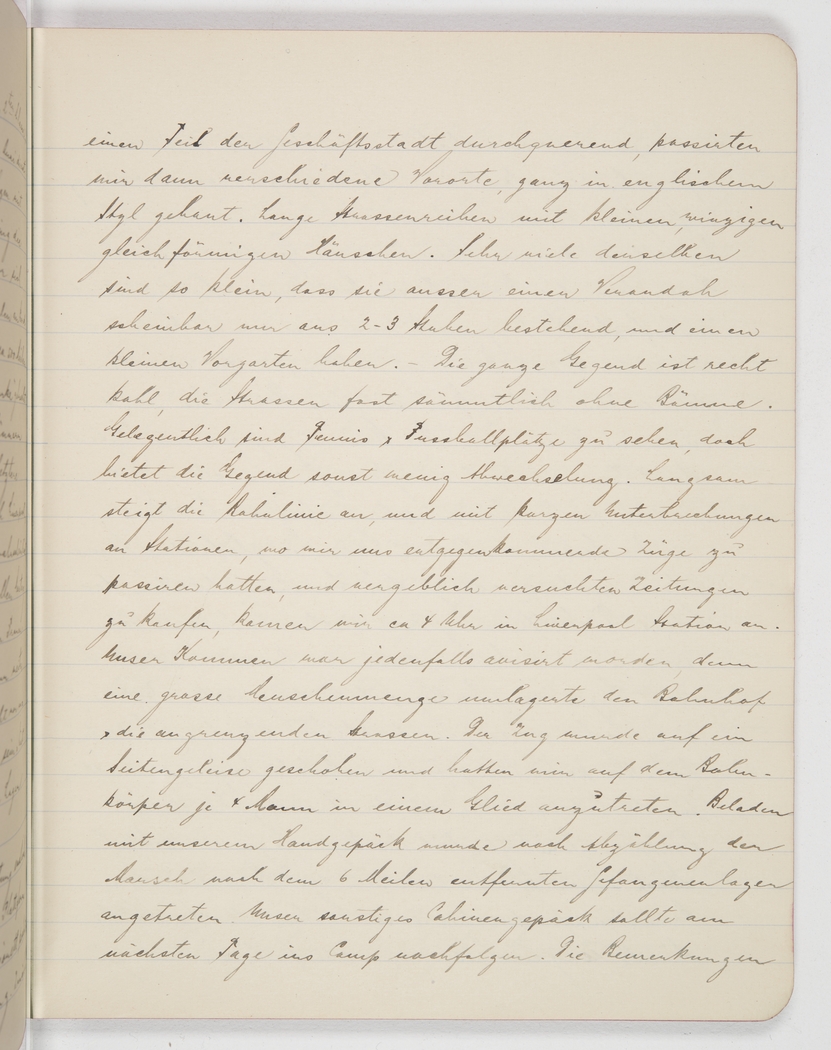 einen Teil der Geschäftsstadt durchquerend, passirten
wir dann verschiedene Vororte, ganz in englischem
Styl gebaut. Lange Strassenreihen mit kleinen, winzigen
gleichförmigen Häuschen. Sehr viele derselben
sind so klein, dass sie ausser einen Verandah
scheinbar nur aus 2-3 Stuben bestehend, und einen
kleinen Vorgarten haben. – Die ganze Gegend ist recht
kahl, die Strassen fast sämmtlich ohne Bäume.
Gelegentlich sind Tennis & Fussballplätze zu sehen, doch
bietet die Gegend sonst wenig Abwechselung. Langsam
steigt die Bahnlinie an, und mit kurzen Unterbrechungen
an Stationen, wo wir uns entgegenkommende Züge zu
passiren hatten, und vergeblich versuchten Zeitungen
zu kaufen, kamen wir ca 4 Uhr in Liverpool Station an.
Unser Kommen war jedenfalls avisirt worden, denn
eine grosse Menschenmenge umlagerte den Bahnhof
& die angrenzenden Strassen. Der Zug wurde auf ein
Seitengeleise geschoben und hatten wir auf dem Bahn-
körper je 4 Mann in einem Glied anzutreten. Beladen
mit unserem Handgepäck wurde nach Abzählung der
Marsch nach dem 6 Meilen entfernten Gefangenenlager
angetreten. Unser sonstiges Cabinengepäck sollte am
nächsten Tage ins Camp nachfolgen. Die Bemerkungen